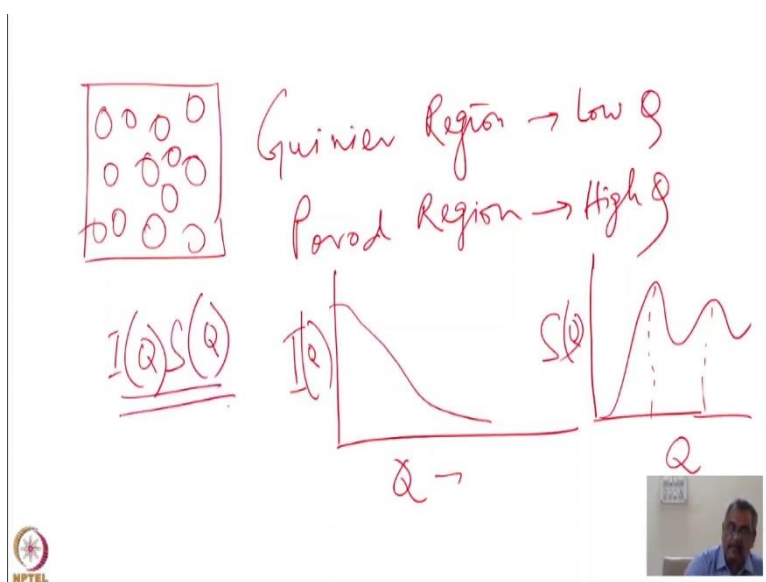 Guinier Region → Low Q
Porod Region → High Q
I(Q)S(Q)
I(Q)
S(Q)
Q →
Q
NPTEL